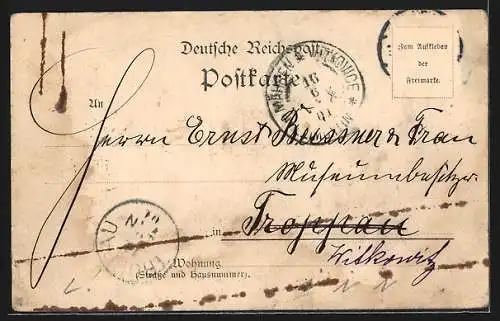 Deutsche Reichspost
Postkarte
Zum Aufkleben
der
Freimarke.
WITKOWICE
16
6
An
Herrn Ernst Bessner & Frau
Museumbesitzer
in Troppau
Witkowitz
Wohnung
(Straße und Hausnummer).